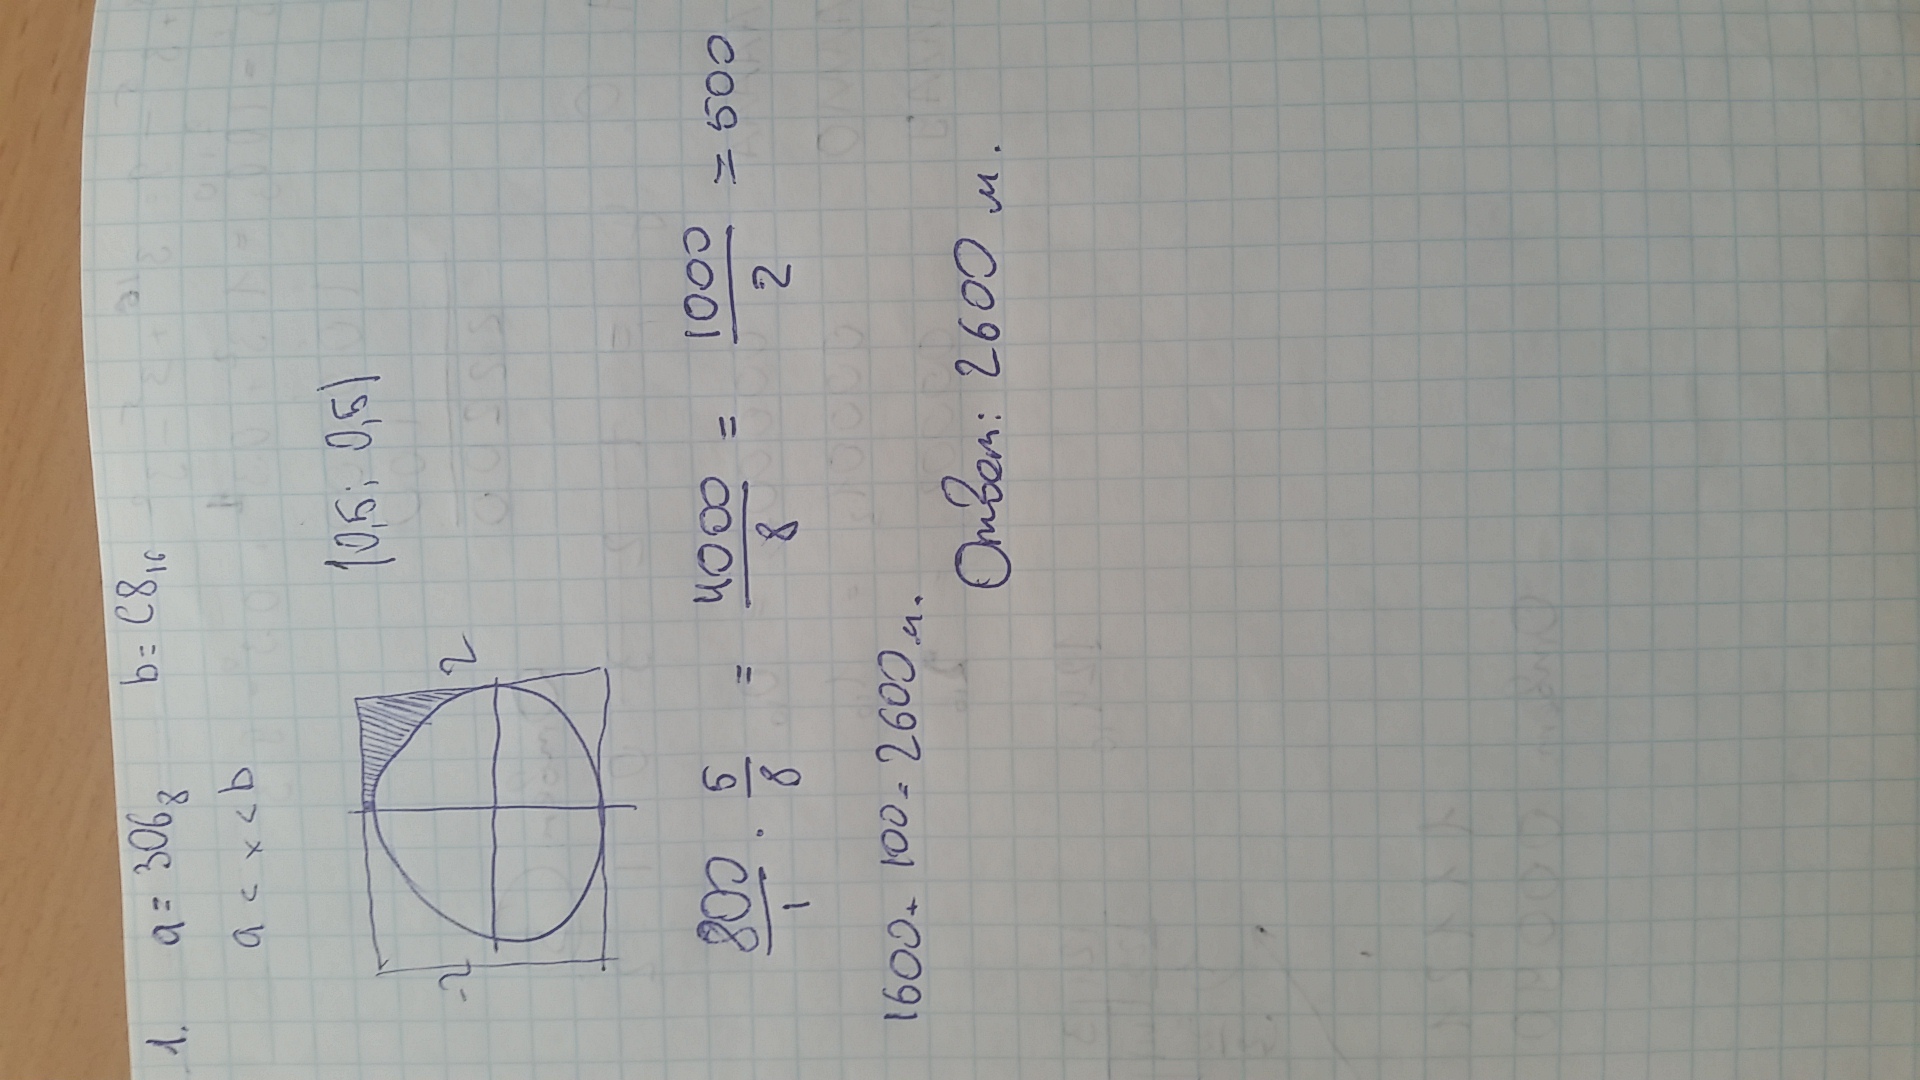 1. a = 306₈ b = C8₁₆
a < x < b
(0,5; 0,5)
-2 2
800/1 · 5/8 = 4000/8 = 1000/2 = 500
1600 + 100 = 2600 м.
Ответ: 2600 м.